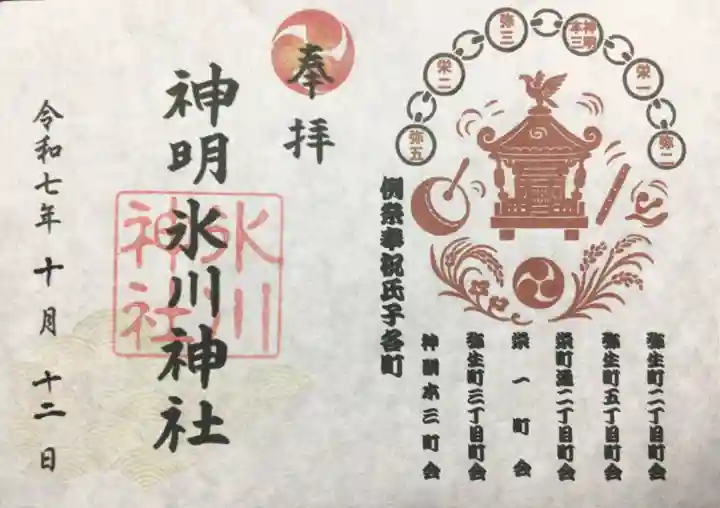 弥二
栄一
神明本三
弥三
栄二
弥五
例祭奉祝氏子各町
弥生町二丁目町会
弥生町五丁目町会
栄町通二丁目町会
栄一町会
弥生町三丁目町会
神明本三町会
奉拝
神明氷川神社
氷川神社
令和七年十月十二日